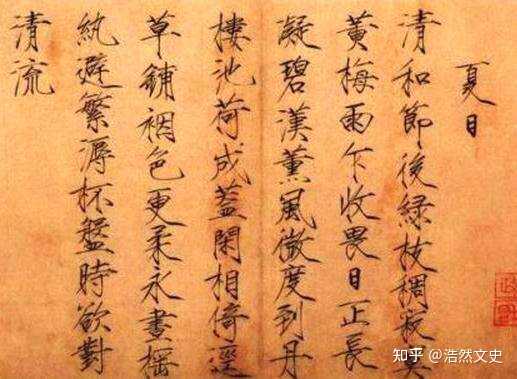 夏日
清和節後綠枝稠寂寞
黃梅雨乍收畏日正長
凝碧漢薰風微度到丹
樓池荷成蓋閑相倚逕
草鋪裀色更柔永晝搖
紈避繁溽杯盤時欲對
清流
知乎 @浩然文史